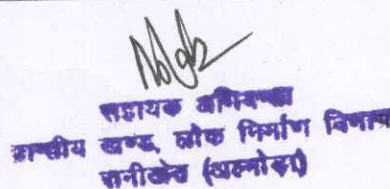 सहायक अभियन्ता
प्रान्तीय खण्ड, लोक निर्माण विभाग
रानीखेत (अल्मोड़ा)